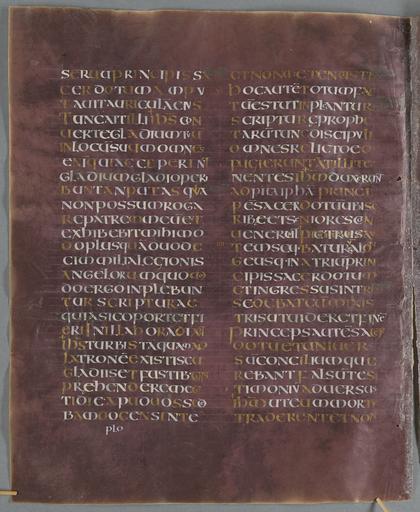 SERUUPRINCIPISSA
TAUITAURICULAEIUS
TUNCAITILLIIHSCON
UERTEGLADIUMTUU
INLOCUSUUMOMNES
GLADIUMGLADIOPERI
BUNTANPUTASQUIA
NONPOSSUMROGA
REPATREMMEUMET
EXHIBEBITMIHIMO
DOPLUSQUADUODE
CIMMILIALEGIONIS
ANGELORUMQUOMO
DOERGOINPLEBUN
TURSCRIPTURAE
QUIASICOPORTETFI
ERIINILLAHORADIXIT
IHSTURBISTAQUAAD
LATRONEEXISTISCU
GLADIISETFUSTIBUS
BAMDOCENSINTE
PLO
ETNONMETENUISTIS
HOCAUTETOTUMFAC
TUESTUTINPLANTUR
SCRIPTUREPROPHE
TARUTUNCDISCIPULI
OMNESRELICTOEO
FUGIERUNTATILLITE
NENTESIHMDUXERUNT
PESACERDOTUUBISC
RIBEETSENIORESCON
UENERUNTPETRUSAU
CIPISSACERDOTUM
ETINGRESSUSINTRO
SEDEBATCUMMINIS
TRISUTUIDERETFINE
PRINCEPSAUTESACER
DOTUETUNIUER
SUCONCILIUMQUE
REBANTFALSUTES
TIMONIUADUERSUS
IHMUTEUMMORTI
TRADERENTETNON